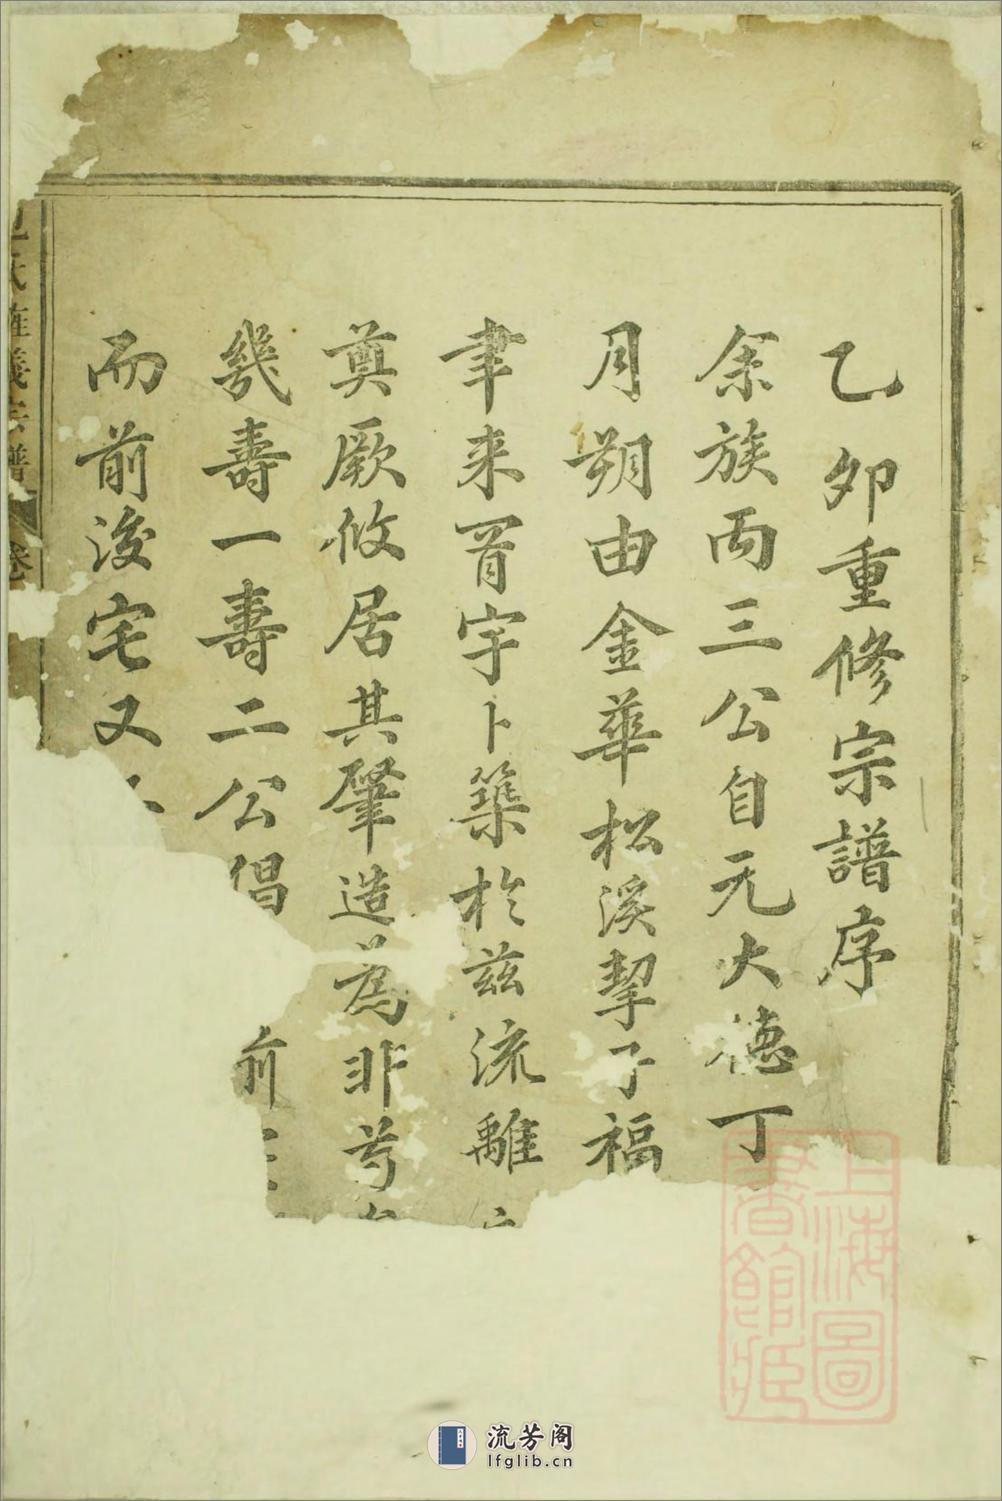 乙卯重修宗譜序
余族両三公自元大德丁
月朔由金華松溪挈子福
聿来胥宇卜築於兹流離
奠厥攸居其肇造為非苟
幾壽一壽二公倡 前
而前浚宅又
氏旌義宗譜 卷
上海圖書館藏
流芳阁
lfglib.cn